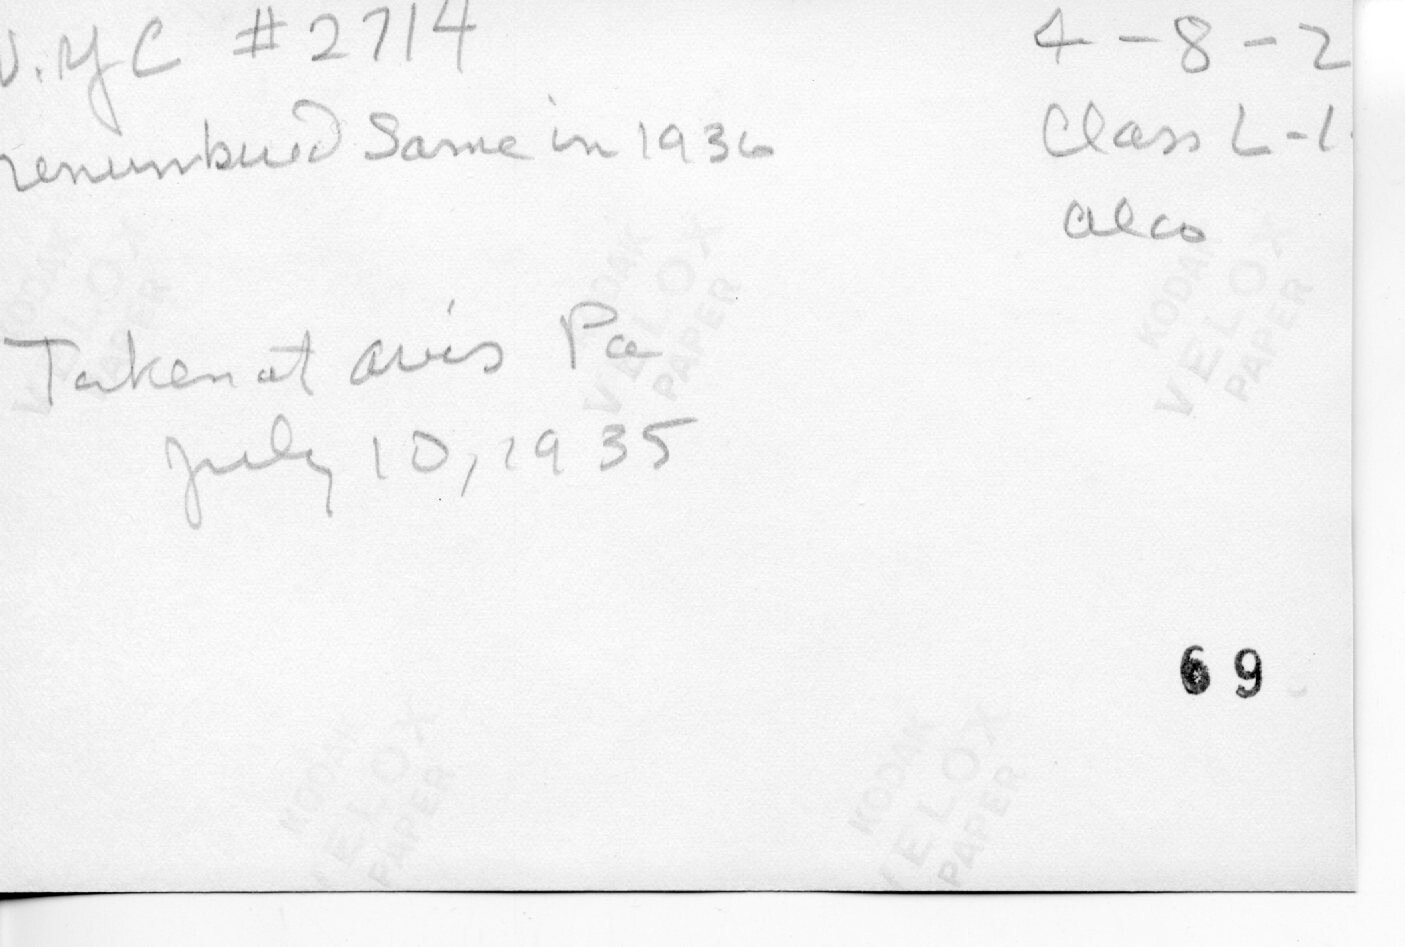 N.Y C #2714 4-8-2
renumbered Same in 1936 Class L-1
alco
KODAK VELOX PAPER
KODAK VELOX PAPER
KODAK VELOX PAPER
Taken at avis Pa
July 10, 1935
69
KODAK VELOX PAPER
KODAK VELOX PAPER